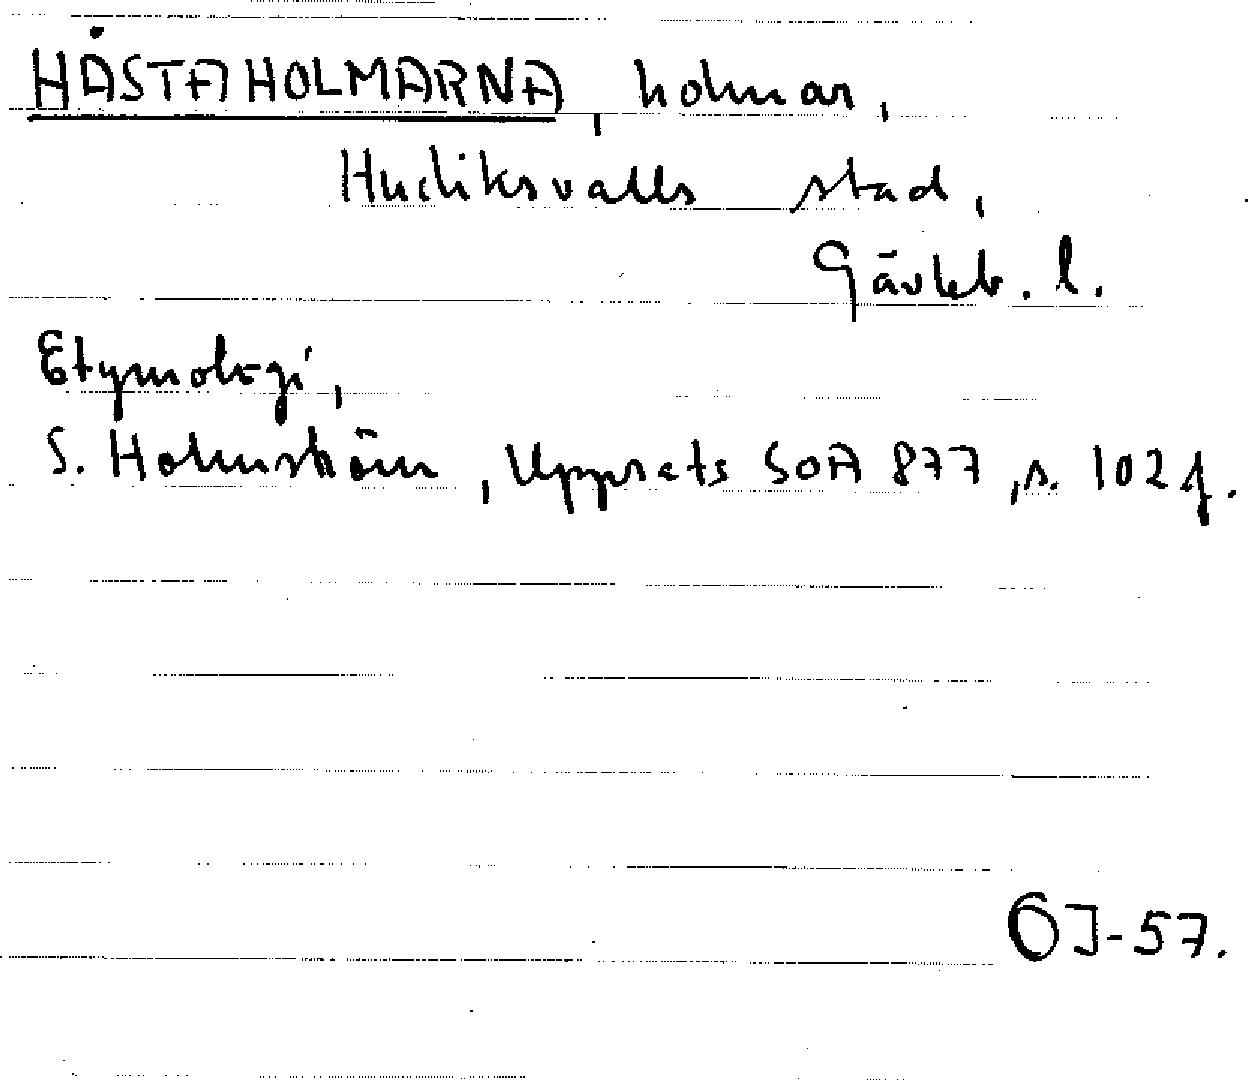 HÅSTAHOLMARNA, holmar,
Hudiksvalls stad,
Gävleb. l.
Etymologi,
S. Holmström, Uppsats SOA 877, s. 102 f.
OJ-57.